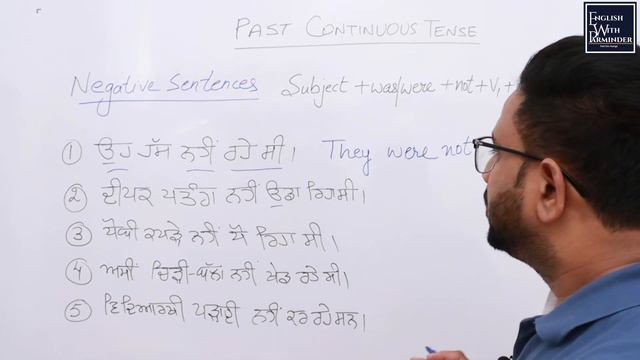 PAST CONTINUOUS TENSE
ENGLISH
WITH
PARMINDER
Negative Sentences Subject + was/were + not + V1 +
① ਉਹ ਹੱਸ ਨਹੀਂ ਰਹੇ ਸੀ। They were not
② ਦੀਪਕ ਪਤੰਗ ਨਹੀਂ ਉਡਾ ਰਿਹਾ ਸੀ।
③ ਧੋਬੀ ਕਪੜੇ ਨਹੀਂ ਧੋ ਰਿਹਾ ਸੀ।
④ ਅਸੀਂ ਚਿੜੀ-ਬੱਲਾ ਨਹੀਂ ਖੇਡ ਰਹੇ ਸੀ।
⑤ ਵਿਦਿਆਰਥੀ ਪੜ੍ਹਾਈ ਨਹੀਂ ਕਰ ਰਹੇ ਸਨ।